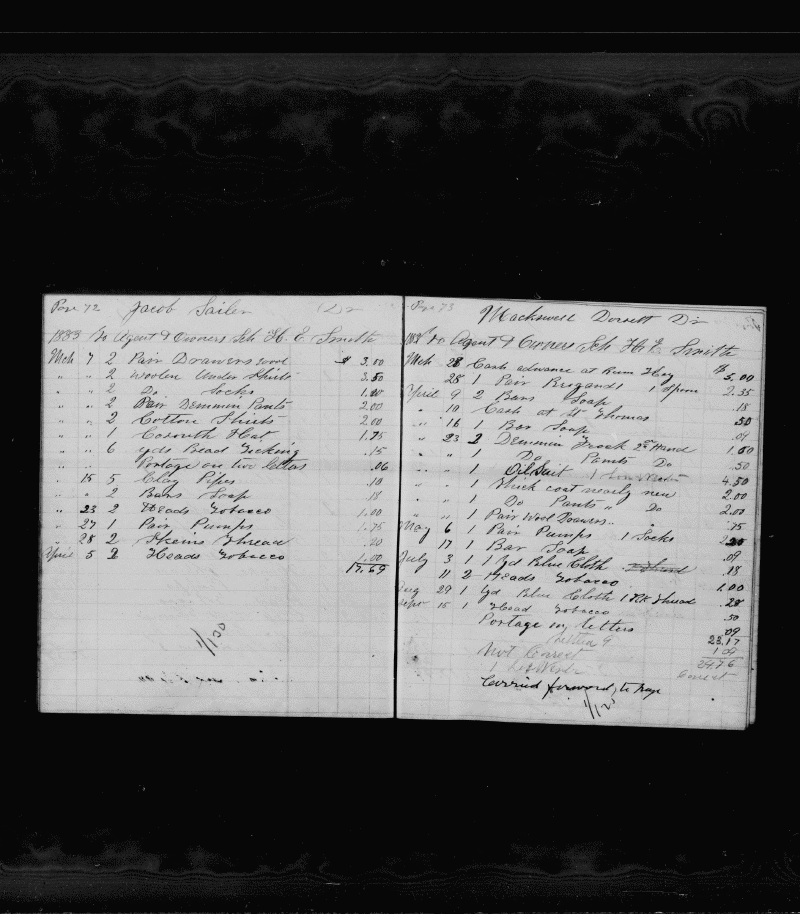 Page 72 Jacob Sailer Dr
1883 To Agent & Owners Sch H. E. Smith
Mch 7 2 Pair Drawers wool $ 3.00
" " 2 Woolen Under Shirts 3.50
" " 2 Do Socks 1.00
" " 2 Pair Demmin Pants 2.00
" " 2 Cotton Shirts 2.00
" " 1 Cosouth Hat 1.75
" " 6 yds Bead Ticking .15
" " Postage on two letters .06
" 15 5 Clay Pipes .10
" " 2 Bars Soap .18
" 23 2 Heads Tobacco 1.00
" 27 1 Pair Pumps 1.75
" 28 2 Skeins Thread .20
April 5 2 Heads Tobacco 1.00
17.69
Page 73 Mackswell Dorsett Dr
To Agent & Owners Sch H. E. Smith
Mch 28 Cash advance at Rum Kay $ 5.00
28 1 Pair Brogands 1 Spoon 2.35
April 9 2 Bars Soap .18
" 10 Cash at St Thomas .50
" 16 1 Bar Soap .09
" 23 2 Demmin Frock 2nd Hand 1.00
" " 1 Do Pants Do .50
" " 1 Oil Suit 4.50
" " 1 Thick coat nearly new 2.00
" " 1 Do Pants " Do 2.00
" " 1 Pair Wool Drawers .75
May 6 1 Pair Pumps 1 Socks
17 1 Bar Soap .09
July 3 1 1 yd Blue Cloth .18
11 2 Heads Tobacco 1.00
Aug 29 1 yd Blue Cloth 1 Thread .28
Sepr 15 1 Head Tobacco .50
Postage on letters .09
23.17
Not Correct 1.09
Correct
Carried forward to Page